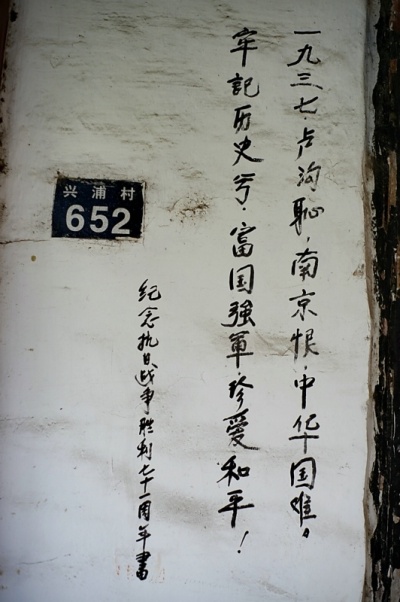 一九三七·卢沟恥，南京恨，中华国难。
牢記历史兮·富国強軍·珍愛和平！
兴浦村
652
纪念抗日战争胜利七十一周年書